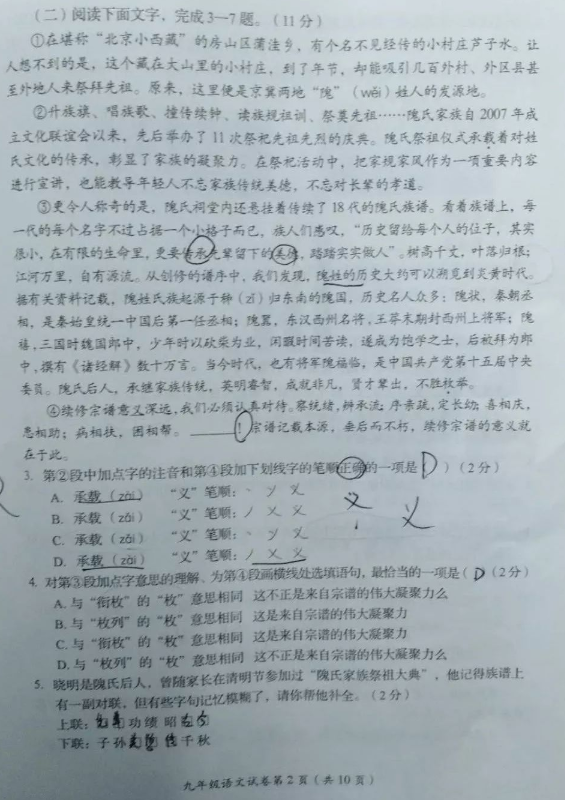 (二)阅读下面文字，完成3—7题。(11分)
①在堪称“北京小西藏”的房山区蒲洼乡，有个名不见经传的小村庄芦子水。让
人想不到的是，这个藏在大山里的小村庄，到了年节，却能吸引几百外村、外区县甚
至外地人来祭拜先祖。原来，这里便是京冀两地“隗”(wěi)姓人的发源地。
②升族旗、唱族歌、撞传续钟、读族规祖训、祭奠先祖……隗氏家族自2007年成
立文化联谊会以来，先后举办了11次祭祀先祖先烈的庆典。隗氏祭祖仪式承载着对姓
氏文化的传承，彰显了家族的凝聚力。在祭祀活动中，把家规家风作为一项重要内容
进行宣讲，也能教导年轻人不忘家族传统美德，不忘对长辈的孝道。
③更令人称奇的是，隗氏祠堂内还悬挂着传续了18代的隗氏族谱。看着族谱上，每
一代的每个名字不过占据一个小格子而已，族人们感叹，“历史留给每个人的位子，其实
很小，在有限的生命里，更要传承先辈留下的美德，踏踏实实做人”。树高千丈，叶落归根；
江河万里，自有源流。从创修的谱序中，我们发现，隗姓的历史大约可以溯觅到炎黄时代。
据有关资料记载，隗姓氏族起源于秭(zǐ)归东南的隗国，历史名人众多：隗状，秦朝丞
相，是秦始皇统一中国后第一任丞相；隗嚣，东汉西州名将，王莽末期封西州上将军；隗
禧，三国时魏国郎中，少年时以砍柴为业，闲暇时间苦读，遂成为饱学之士，后被拜为郎
中，撰有《诸经解》数十万言。当今时代，也有将军隗福临，是中国共产党第十五届中央
委员。隗氏后人，承继家族传统，英明睿智，成就非凡，贤才辈出，不胜枚举。
④续修宗谱意义深远，我们必须认真对待。察统绪，辨承流；序亲疏，定长幼；喜相庆，
患相助；病相扶，困相帮。______！宗谱记载本源，垂后而不朽，续修宗谱的意义就
在于此。
3. 第②段中加点字的注音和第④段加下划线字的笔顺正确的一项是( D )(2分)
A. 承载(zài) “义”笔顺：丶 乂 义
B. 承载(zǎi) “义”笔顺：丿 乂 义
C. 承载(zǎi) “义”笔顺：丶 乂 义
D. 承载(zài) “义”笔顺：丿 乂 义
义 义
4. 对第③段加点字意思的理解、为第④段画横线处选填语句，最恰当的一项是( D (2分)
A. 与“衔枚”的“枚”意思相同 这不正是来自宗谱的伟大凝聚力么
B. 与“枚列”的“枚”意思相同 这是来自宗谱的伟大凝聚力
C. 与“衔枚”的“枚”意思相同 这是来自宗谱的伟大凝聚力
D. 与“枚列”的“枚”意思相同 这不正是来自宗谱的伟大凝聚力么
5. 晓明是隗氏后人，曾随家长在清明节参加过“隗氏家族祭祖大典”，他记得族谱上
有一副对联，但有些字句记忆模糊了，请你帮他补全。(2分)
上联： 功绩昭
下联：子孙 千秋
九年级语文试卷第2页(共10页)